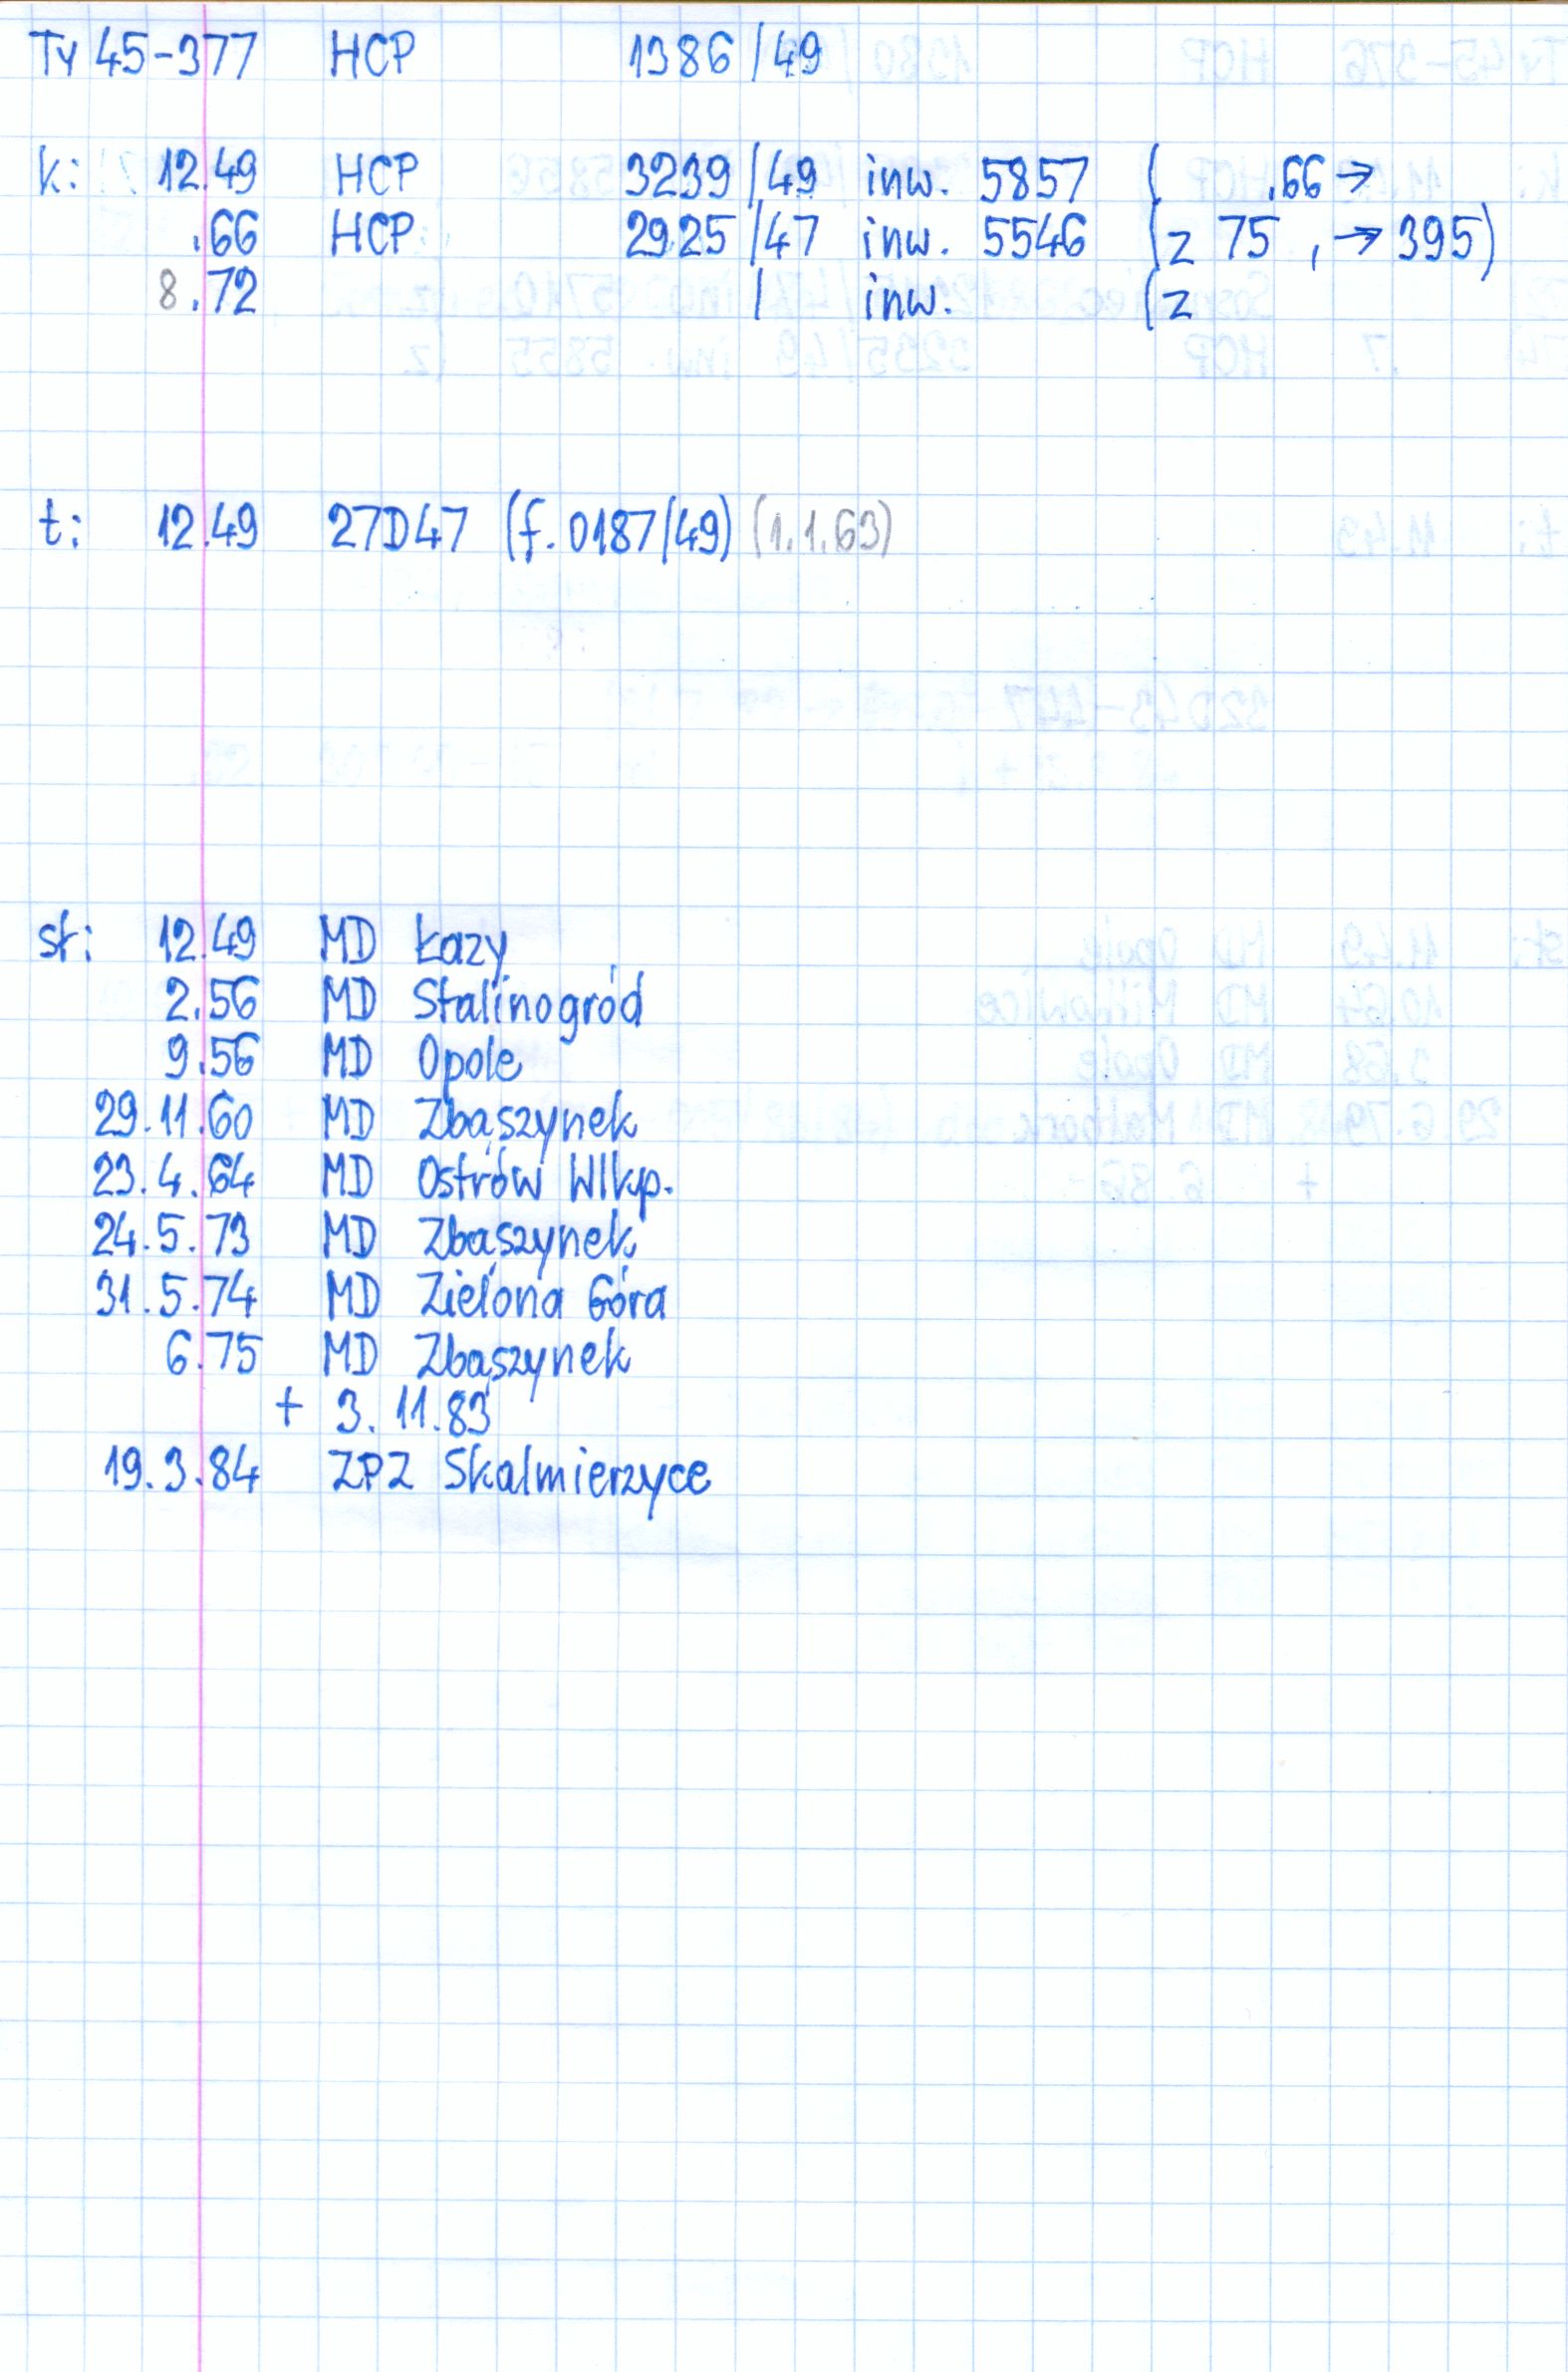 Ty 45-377 HCP 1386/49
k: 12.49 HCP 3239/49 inw. 5857 ( .66 →
.66 HCP 2925/47 inw. 5546 (z 75 , → 395)
8.72 / inw. (z
t: 12.49 27D47 (f. 0187/49) (1.1.63)
st: 12.49 MD Łazy
2.56 MD Stalinogród
9.56 MD Opole
29.11.60 MD Zbąszynek
23.4.64 MD Ostrów Wlkp.
24.5.73 MD Zbąszynek
31.5.74 MD Zielona Góra
6.75 MD Zbąszynek
+ 3.11.83
19.3.84 ZPZ Skalmierzyce